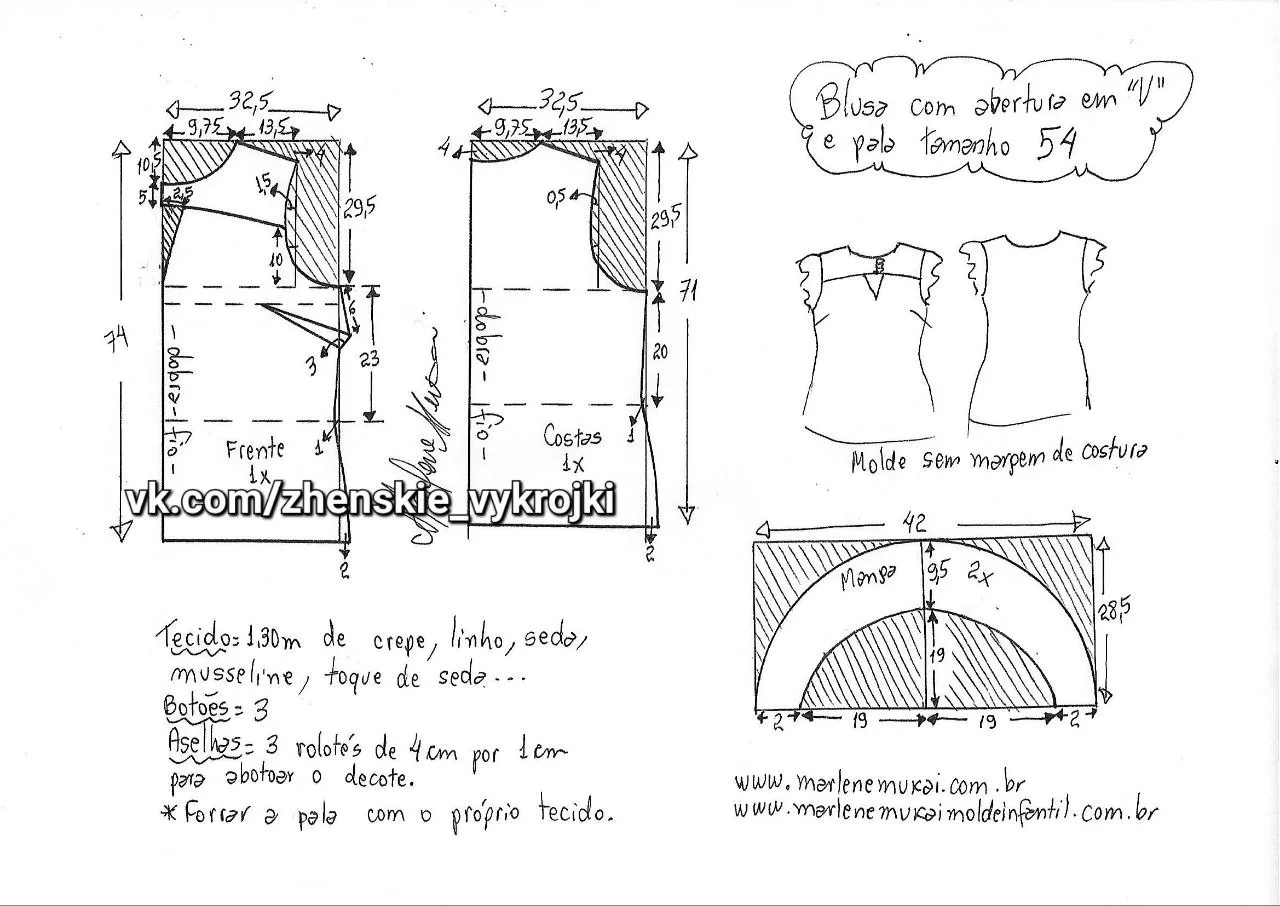 Blusa com abertura em "V"
e pala tamanho 54
32,5
9,75
13,5
10,5
4
1,5
5
2,5
29,5
10
6
74
3
23
-dobra-fio-
1
Frente
1x
2
32,5
9,75
13,5
4
4
0,5
29,5
71
20
-dobra-
fio-
Costas
1x
1
2
vk.com/zhenskie_vykrojki
Molde sem margem de costura
42
Manga
9,5
2x
28,5
19
2
19
19
2
Tecido= 1,30m de crepe, linho, seda,
musseline, toque de seda...
Botões= 3
Aselhas= 3 rolotés de 4cm por 1cm
para abotoar o decote.
*Forrar a pala com o próprio tecido.
www.marlenemukai.com.br
www.marlenemukaimoldeinfantil.com.br